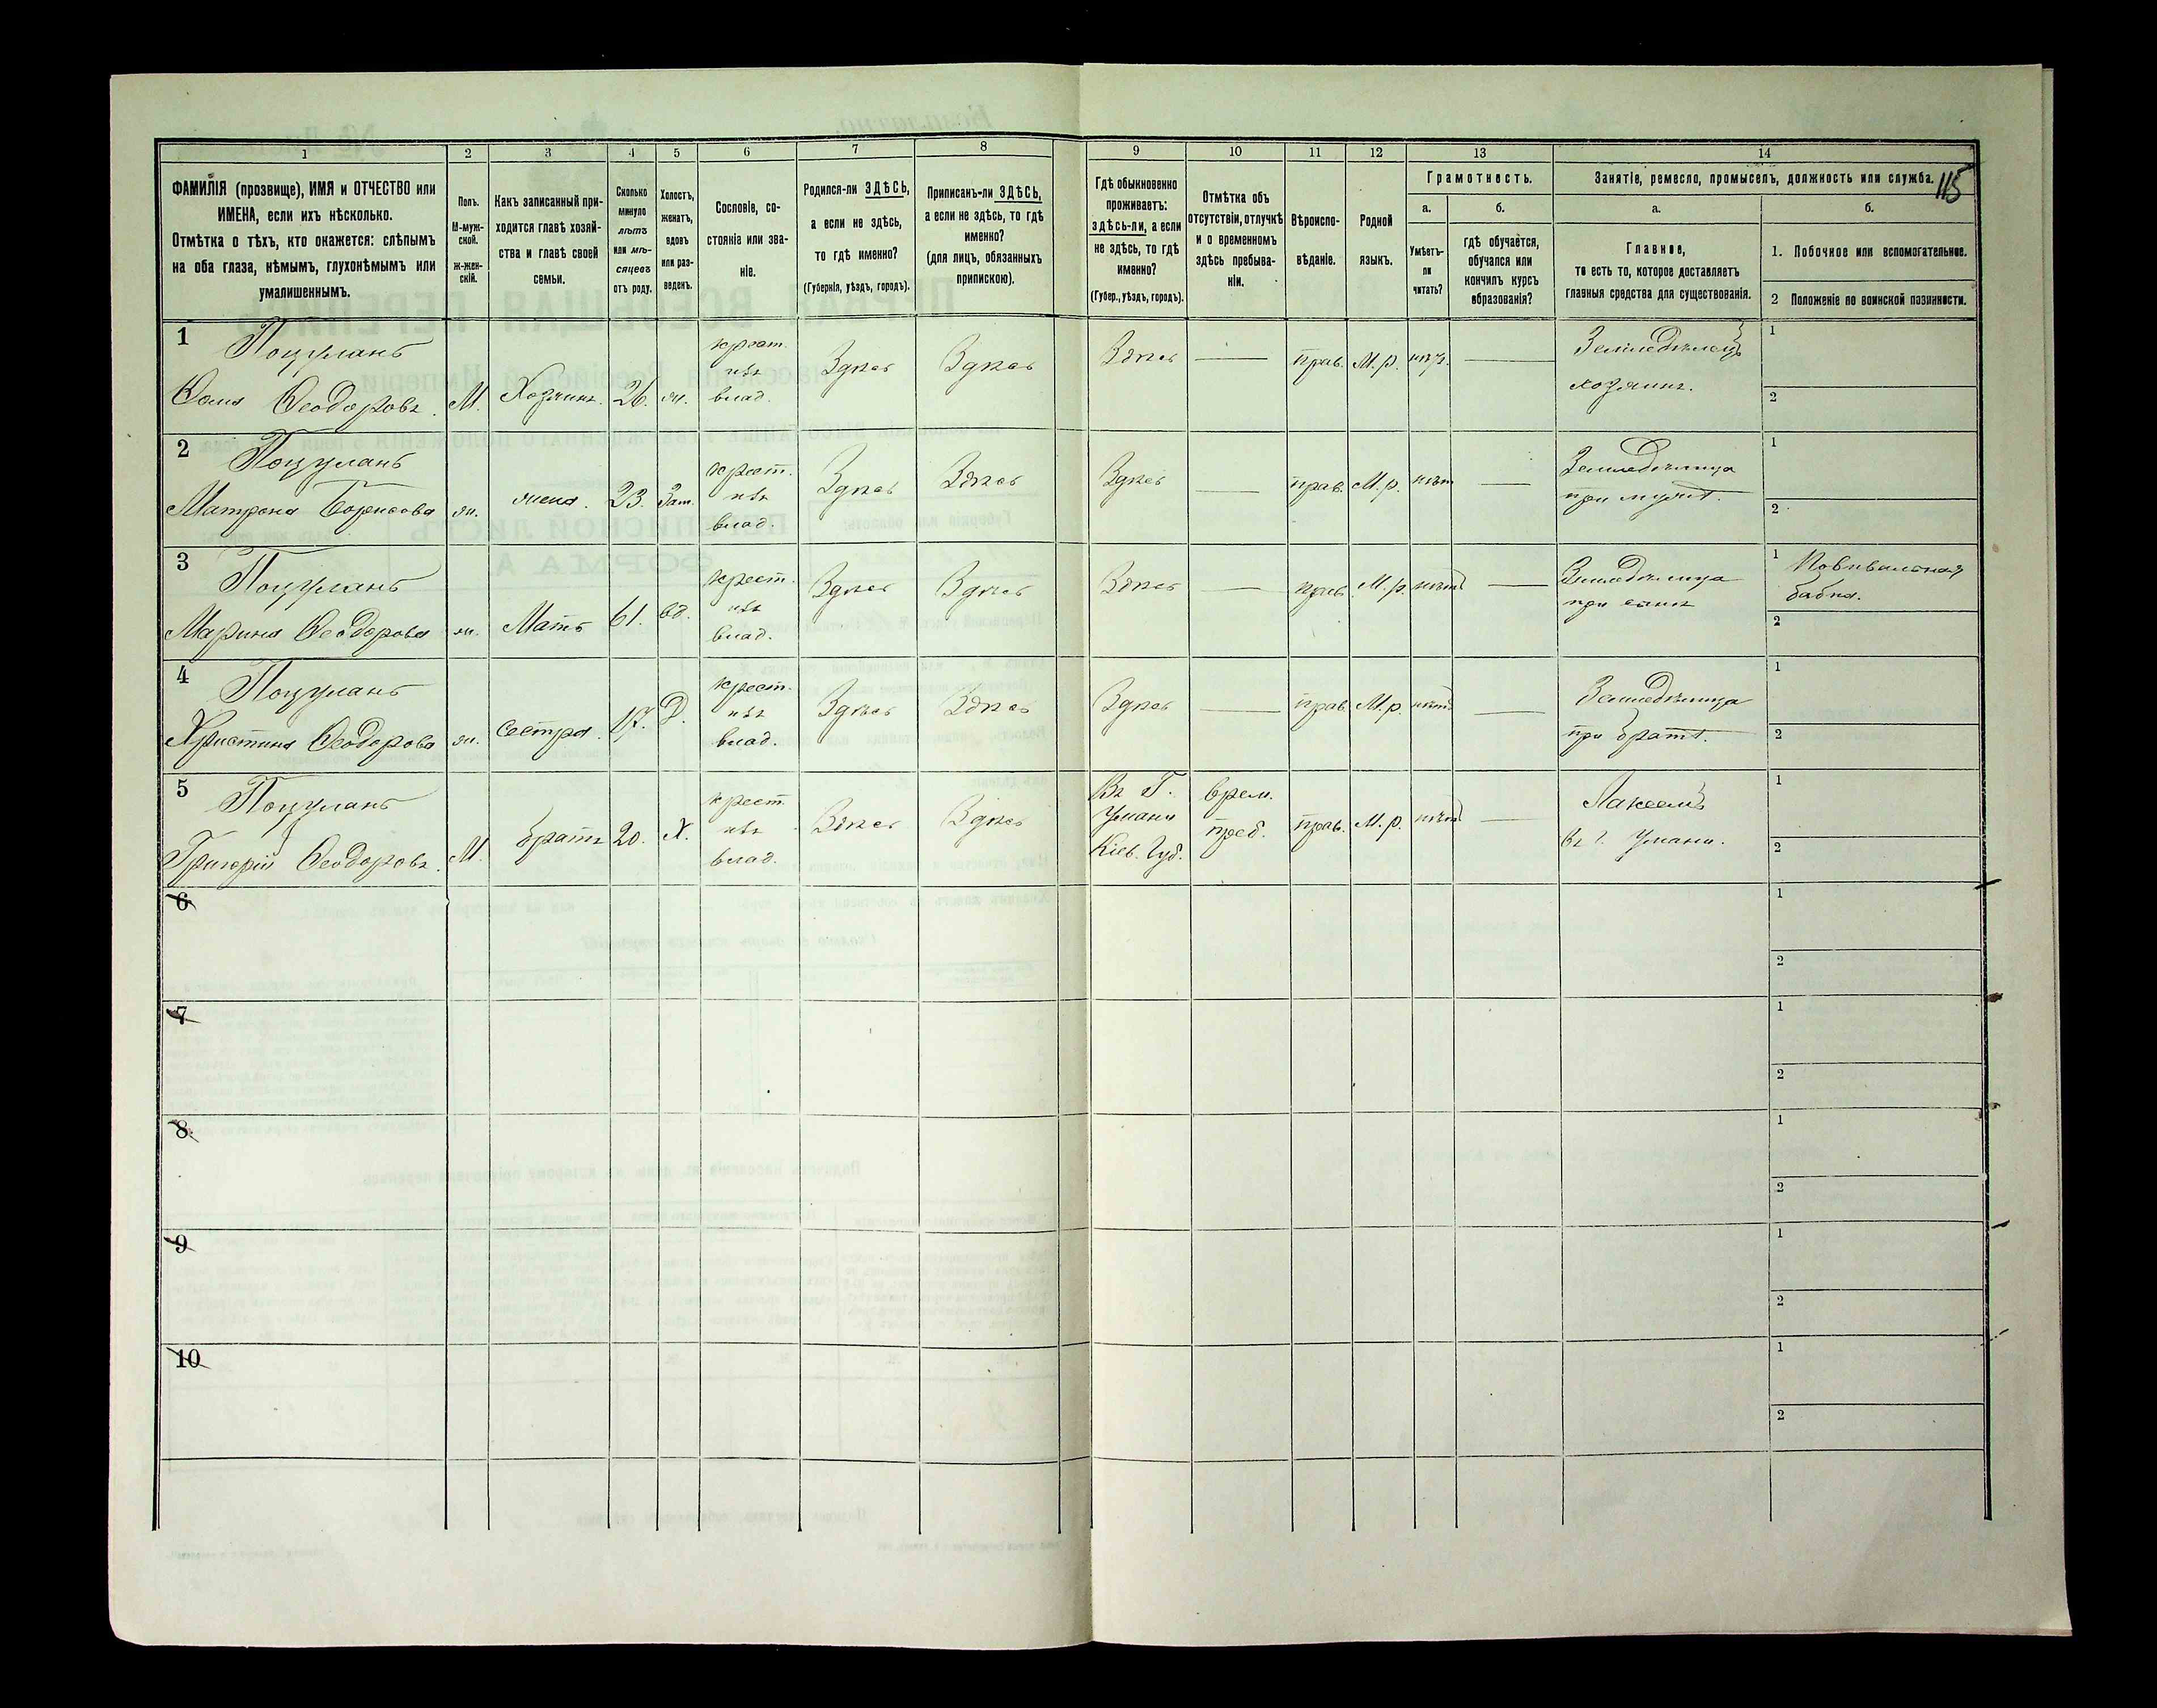 115
1 2 3 4 5 6 7 8 9 10 11 12 13 14
ФАМИЛІЯ (прозвище), ИМЯ и ОТЧЕСТВО или
ИМЕНА, если ихъ нѣсколько.
Отмѣтка о тѣхъ, кто окажется: слѣпымъ
на оба глаза, нѣмымъ, глухонѣмымъ или
умалишеннымъ.
Полъ.
М-муж-
ской.
ж-жен-
скій.
Какъ записанный при-
ходится главѣ хозяй-
ства и главѣ своей
семьи.
Сколько
минуло
лѣтъ
или мѣ-
сяцевъ
отъ роду.
Холостъ,
женатъ,
вдовъ
или раз-
веденъ.
Сословіе, со-
стояніе или зва-
ніе.
Родился-ли ЗДѢСЬ,
а если не здѣсь,
то гдѣ именно?
(Губернія, уѣздъ, городъ).
Приписанъ-ли ЗДѢСЬ,
а если не здѣсь, то гдѣ
именно?
(для лицъ, обязанныхъ
припискою).
Гдѣ обыкновенно
проживаетъ:
здѣсь-ли, а если
не здѣсь, то гдѣ
именно?
(Губер., уѣздъ, городъ).
Отмѣтка объ
отсутствіи, отлучкѣ
и о временномъ
здѣсь пребыва-
ніи.
Вѣроиспо-
вѣданіе.
Родной
языкъ.
Грамотность.
а.
Умѣетъ-
ли
читать?
б.
гдѣ обучается,
обучался или
кончилъ курсъ
образованія?
Занятіе, ремесло, промыселъ, должность или служба.
а.
Главное,
то есть то, которое доставляетъ
главныя средства для существованія.
б.
1. Побочное или вспомогательное.
2 Положеніе по воинской повинности.
1
Поцуланъ
Ѳома Ѳеодоровъ.
М.
Хозяинъ.
26.
ж.
крест.
изъ
влад.
Здѣсь
Здѣсь
Здѣсь
прав.
М. р.
Земледѣлецъ
хозяинъ.
1
2
2
Поцуланъ
Матрона Борисова
ж.
жена.
23.
Зам.
крест.
изъ
влад.
Здѣсь
Здѣсь
Здѣсь
прав.
М. р.
нѣт
Земледѣлица
при мужѣ.
1
2
3
Поцуланъ
Марина Ѳеодорова
ж.
Мать
61.
вд.
крест.
изъ
влад.
Здѣсь
Здѣсь
Здѣсь
прав.
М. р.
нѣтъ
Земледѣлица
при сынѣ
1 Повивальная
бабка.
2
4
Поцуланъ
Христина Ѳеодорова
ж.
сестра.
17.
Д.
крест.
изъ
влад.
Здѣсь
Здѣсь
Здѣсь
прав.
М. р.
нѣтъ
Земледѣлица
при братѣ.
1
2
5
Поцуланъ
Григорій Ѳеодоровъ.
М.
братъ
20.
Х.
крест.
изъ
влад.
Здѣсь
Здѣсь
Въ Г.
Умани
Кіев. Губ.
врем.
преб.
прав.
М. р.
нѣтъ
Лакеемъ
въ г. Умани.
1
2
6
1
2
7
1
2
8
1
2
9
1
2
10
1
2